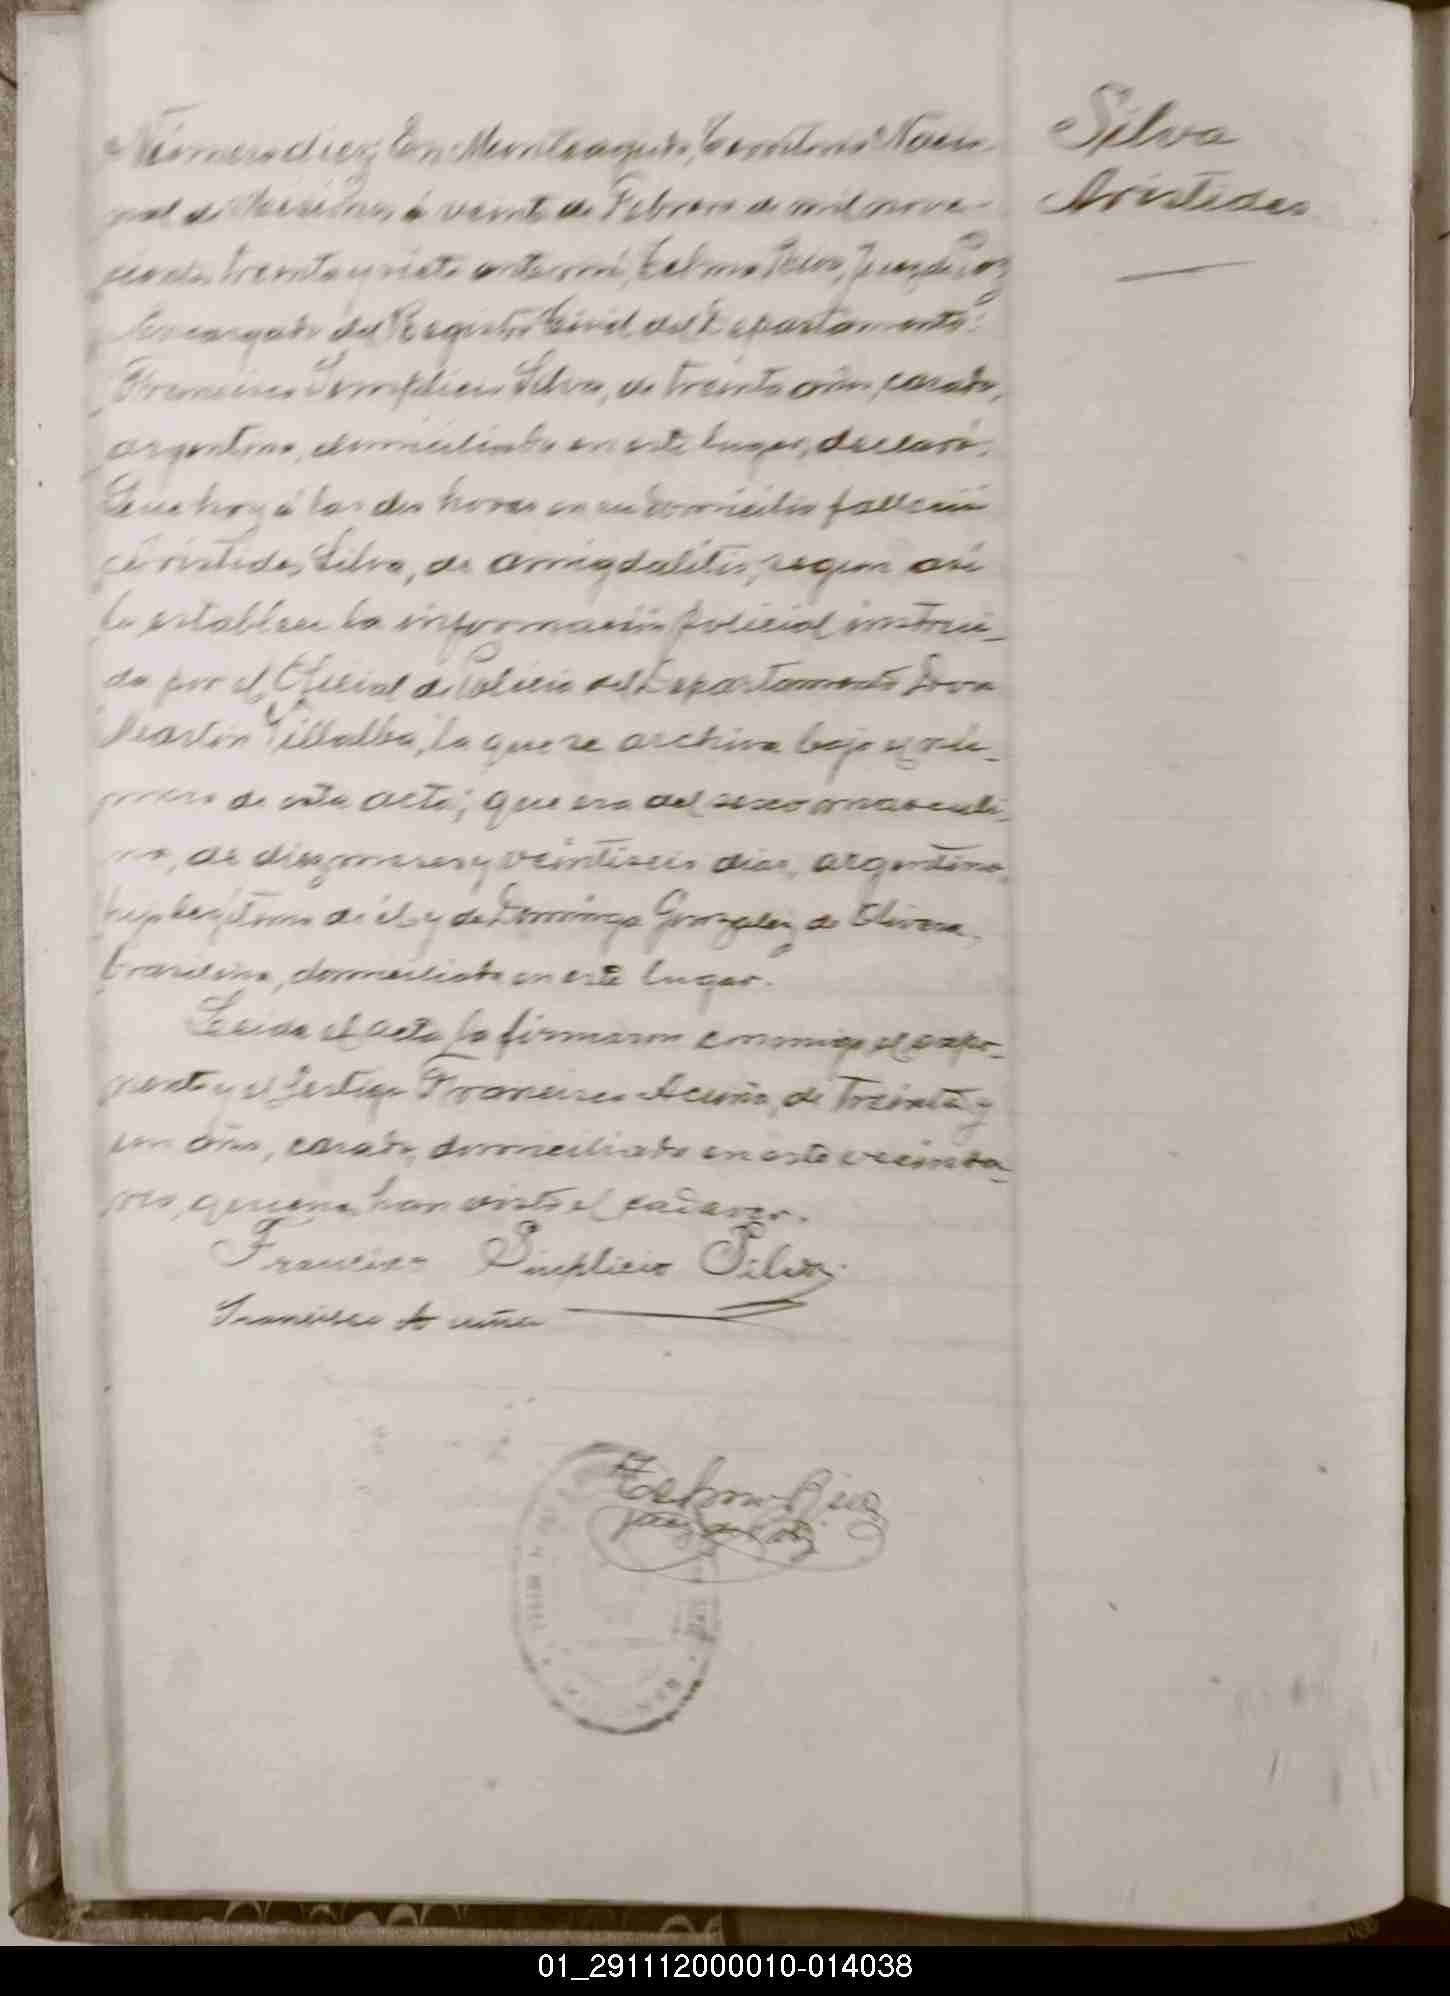 Silva
Aristides
Número diez En Monteagudo, Territorio Nacio-
nal de Misiones, á veinte de Febrero de mil nove-
cientos treinta y siete ante mí, Telmo Juez de Paz
Encargado del Registro Civil del Departamento:
Francisco Simplicio Silva, de treinta años, casado,
argentino, domiciliado en este lugar, declaró:
Que hoy á las dos horas en su domicilio falleció
Arístides Silva, de amigdalitis, segun así
lo establece la información policial instrui-
da por el Oficial de Policia del Departamento Don
Martín Villalba, la que se archiva bajo el nú-
mero de esta acta; que era del sexo masculi-
no, de diez meses y veintiseis dias, argentino,
hijo legítimo de él y de Dominga Gonzalez de Olivera,
brasileña, domiciliada en este lugar.
Leida el acta la firmaron conmigo el expo-
nente y el testigo Francisco Acuña, de treinta y
un años, casado, domiciliado en este vecinda-
rio, quienes han visto el cadaver.
Francisco Simplicio Silva
Francisco Acuña
Telmo
Juez de Paz
01_291112000010-014038